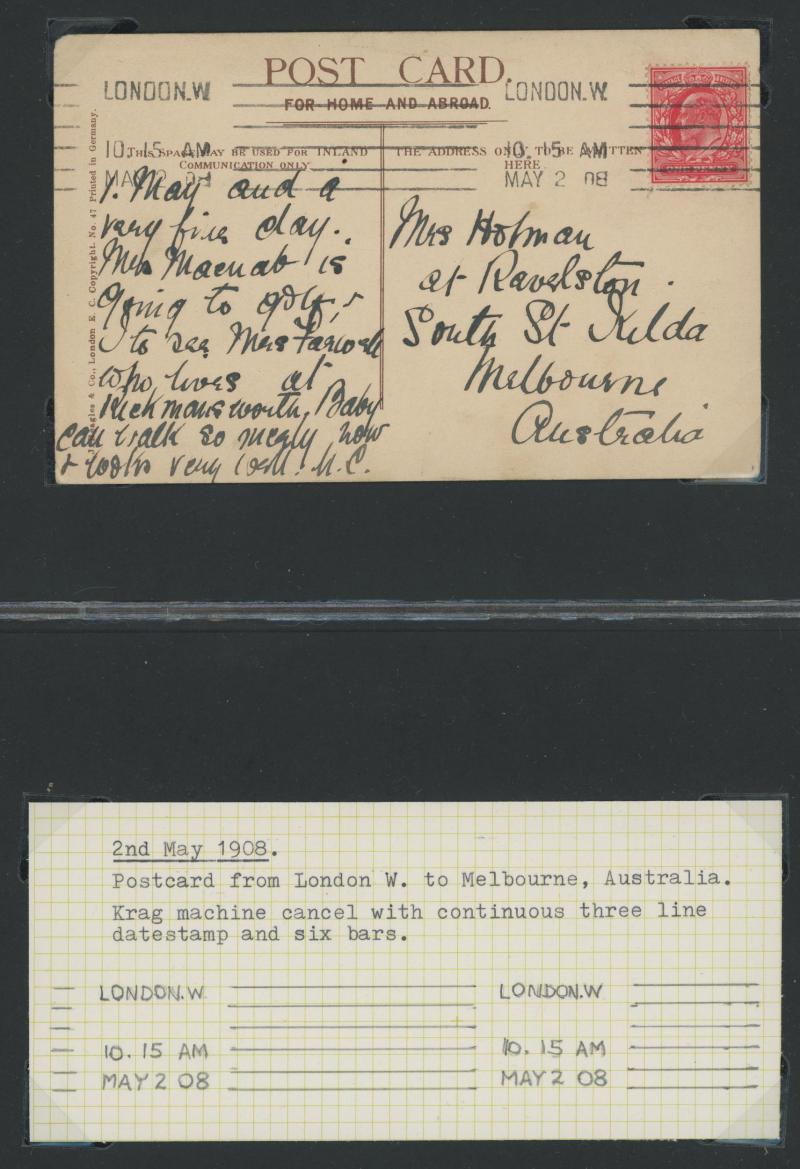 POST CARD.
FOR HOME AND ABROAD.
LONDON.W LONDON.W
10.15 AM 10.15 AM
MAY 2 08 MAY 2 08
THIS SPACE MAY BE USED FOR INLAND
COMMUNICATION ONLY
THE ADDRESS ONLY TO BE WRITTEN
HERE
& Co., London E. C. Copyright. No. 47 Printed in Germany.
1. May and a
very fine day.
Mrs Macnab is
going to golf, &
I to see Mrs
who lives at
Rickmansworth. Baby
can walk so nicely now
& looks very well. M.C.
Mrs Holman
at Ravelston.
South St Kilda
Melbourne
Australia
2nd May 1908.
Postcard from London W. to Melbourne, Australia.
Krag machine cancel with continuous three line
datestamp and six bars.
LONDON.W LONDON.W
10.15 AM 10.15 AM
MAY 2 08 MAY 2 08